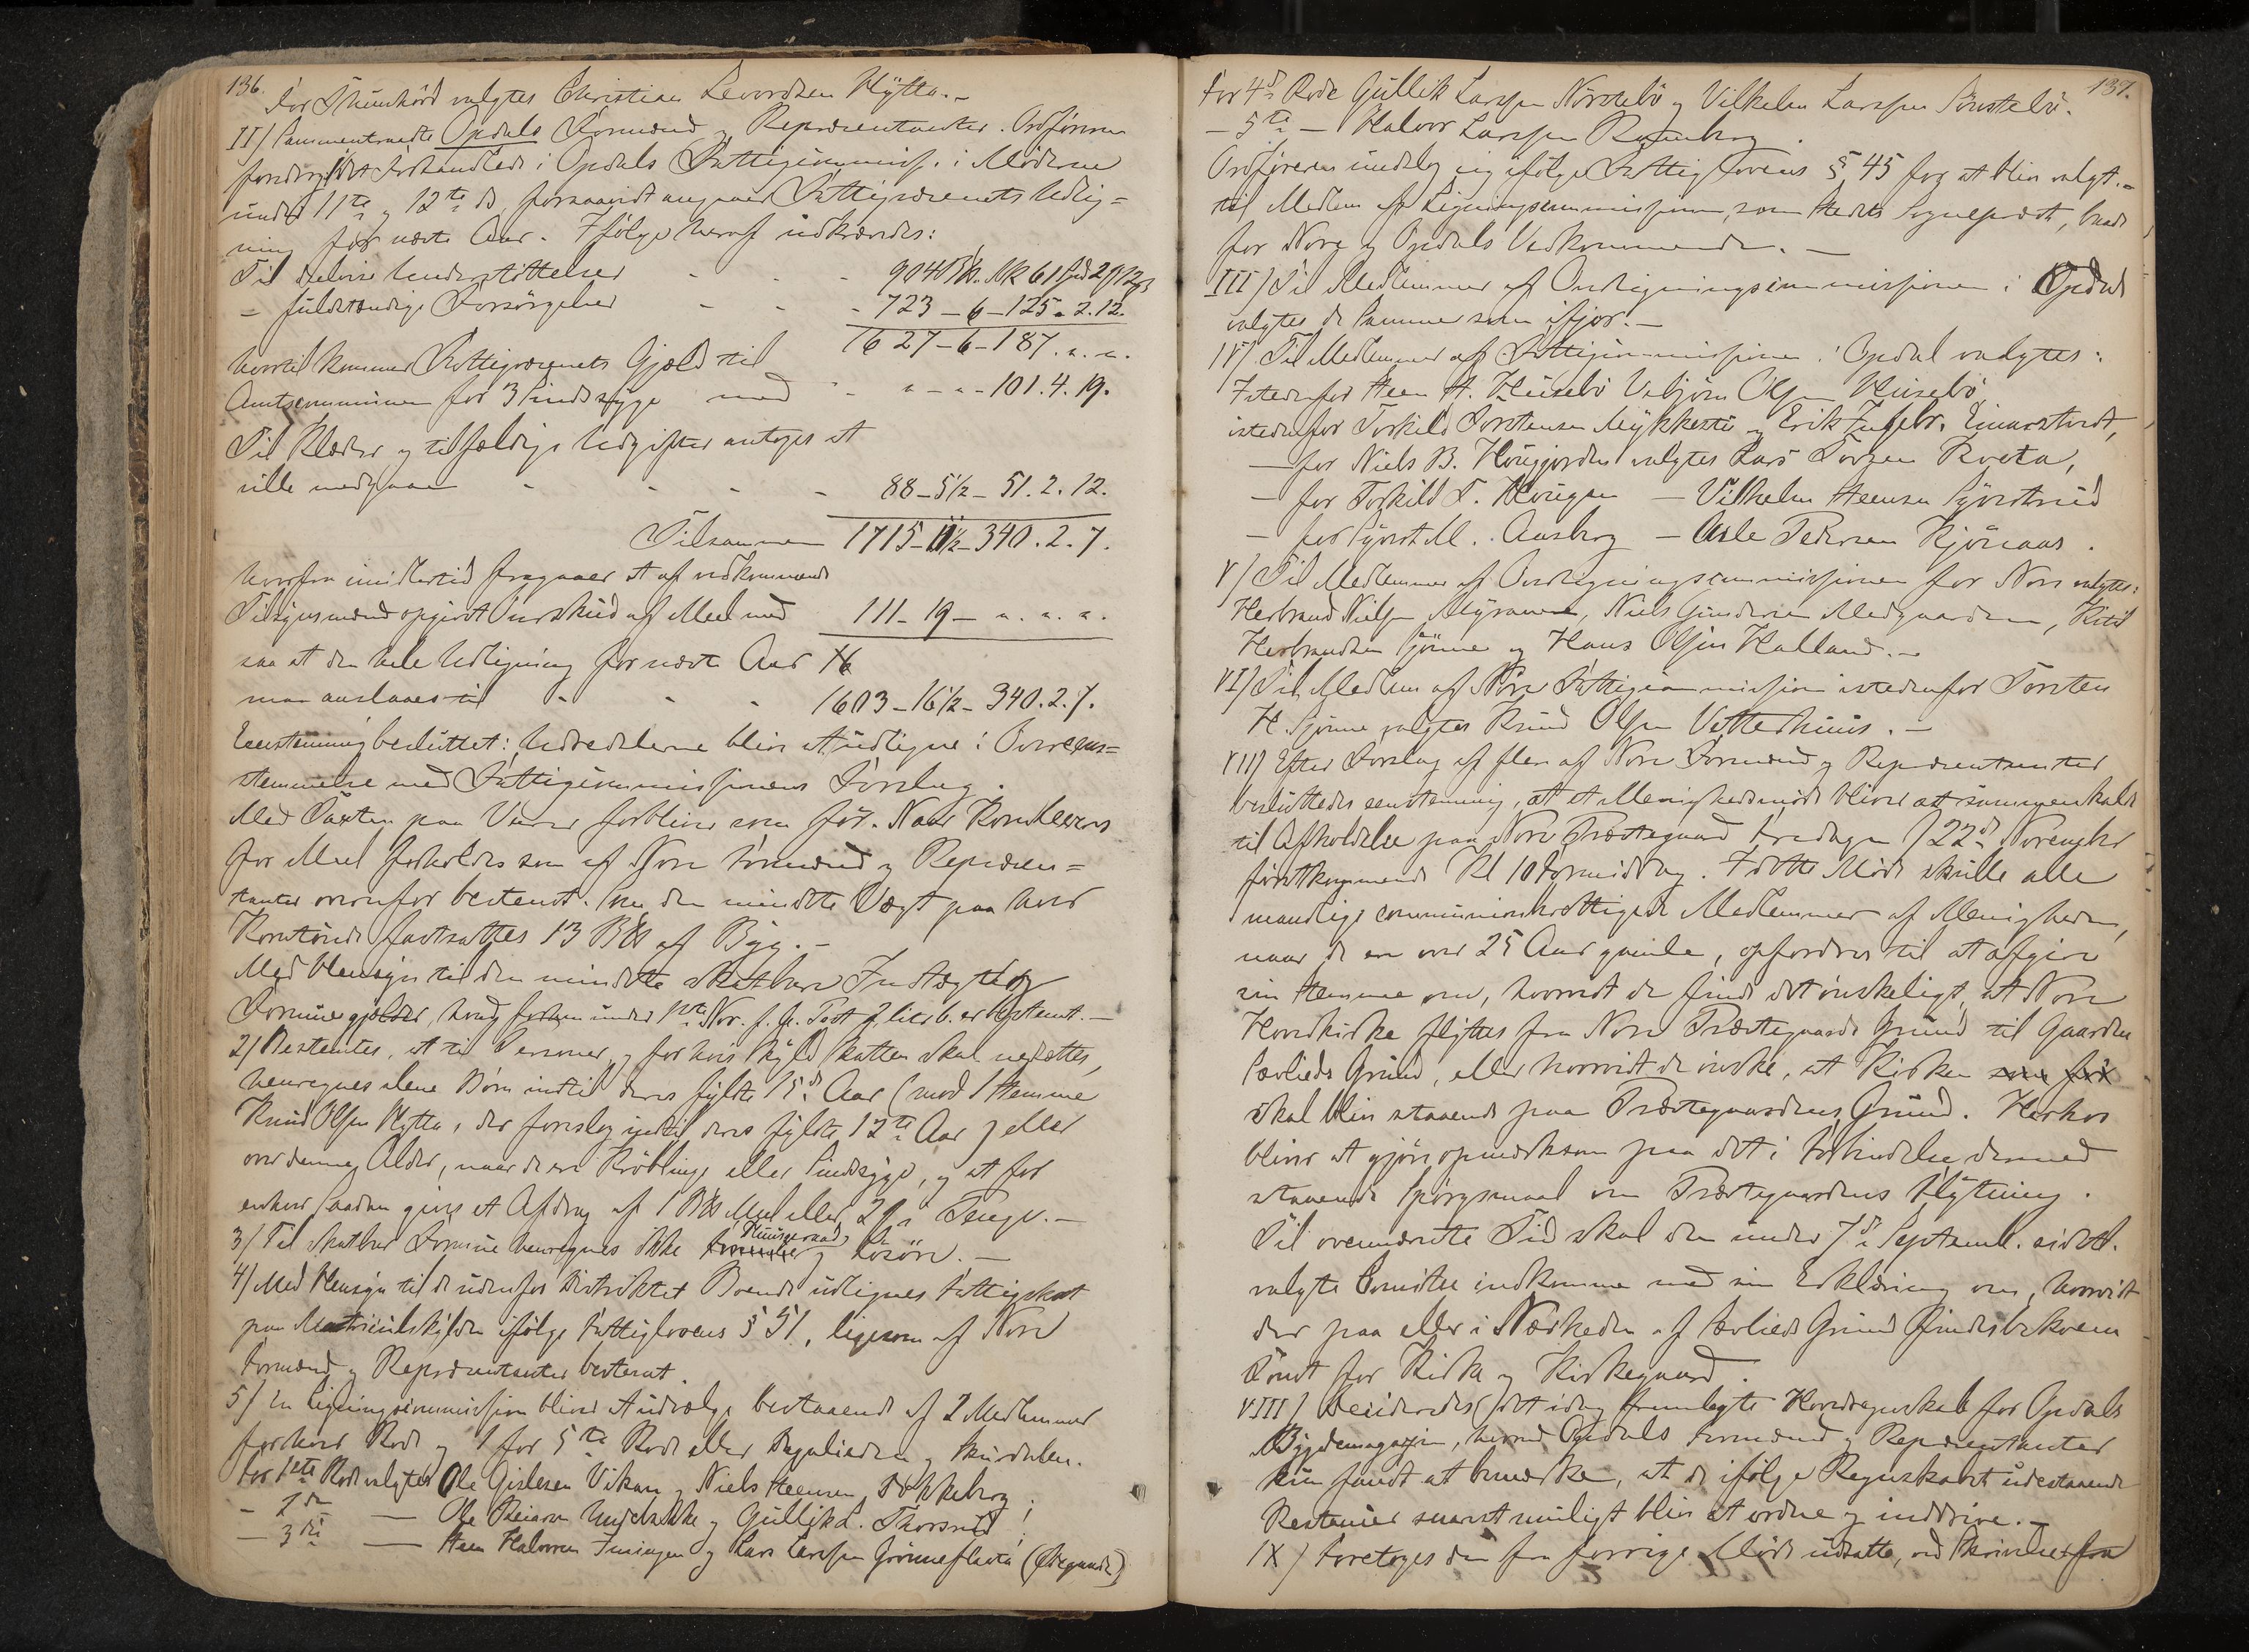 136.
For Skurdord valgtes Christian Levordsen Hytta.-
II/ Sammentraadte Opdals Formænd og Repræsentanter. Ordføreren
foredrog det Forhandlede i Opdals Fattigcommiss. i Møderne
under 11te og 12te ds, forsaavidt angaaer Fattigvæsenets Udlig=
ning for næste Aar. Ifølge heraf udkrævedes:
Til delvise Understøttelser - - - 904
- fuldstændige Forsørgelser - - - 723 - 6 - 125 - 2.12.
1627 - 6 - 187. " . " .
hvortil kommer Fattigvæsenets Gjæld til
Amtscommunen for 3 Sindssyge med - " - " - 101.4.19.
Til Klæder og tilfældige Udgifter antoges at
ville medgaae - - - - 88 - 5½ - 51.2.12.
Tilsammen 1715 - 11½ - 340.2.7.
hvorfra imidlertid fragaaer et af vedkommende
Tilsynsmænd opgivet Overskud af Meel med 111 - 19 - " . " . " .
saa at den hele Udligning for næste Aar
maa anslaaes til - - - 1603 - 16½ - 340.2.7.
Eenstemmig besluttet: Udredslerne blive at udligne i Overeens=
stemmelse med Fattigcommissionens Forslag.
Med Taxten paa Varer forbliver som før. Naar Korn leveres
for Meel forholdes som af Nore Formænd og Repræsen=
tanter ovenfor bestemt. Som den mindste Vægt paa hver
Korntønde fastsattes 13 af Byg.-
Med Hensyn til den mindste skatbare Indtægt og
Formue gjælder, hvad under 1ste Nov. f. A. Post 2, litr b. er bestemt.-
2/ Bestemtes, at til Personer, for hvis Skyld Skatten skal nedsættes,
henregnes alene Børn indtil deres fyldte 15de Aar (mod 1 Stemme
Knud Olsen Hytta, der foreslog indtil deres fyldte 12te Aar) eller
over denne Alder, naar de ere Krøblinge eller Sindssyge, og at for
enhver Saadan gives et Afdrag af 1 Meel eller 2 i Penge.-
3/ Til skatbar Formue henregnes ikke Huusgeraad og Løsøre.-
4/ Med Hensyn til de udenfor Distriktet Boende udlignes Fattigskat
paa Matriculskylden ifølge Fattiglovens § 51, ligesom af Nore
Formænd og Repræsentanter bestemt.
5/ En Ligningscommission bliver at udvælge bestaaende af 2 Medlemmer
for hver Rode og 1 for 5te Rode eller Dagaliden og Skurdalen.
For 1ste Rode valgtes Ole Gislesen Vikan og Niels Steensen Bækkeberg
- 2den - Ole og Gullik L. Thorsrud
- 3die - Steen Halvorsen Inningen og Lars Larssen Grønneflata (Ødegaarde)
137.
For 4de Rode Gullik Larssen Nørstebø og Vilhelm Larssen Sønstebø.
- 5te - Halvor Larssen Rosenberg.
Ordføreren undslog sig ifølge Fattiglovens § 45 for at blive valgt.-
til Medlem af Ligningscommissionen, som Stedets Sognepræst, baade
for Nore og Opdals Vedkommende.-
III/ Til Medlemmer af Overligningscommissionen i Opdal
valgtes de Samme som ifjor.-
IV/ Til Medlemmer af Fattigcommissionen i Opdal valgtes:
Istedenfor Steen H. Huusebø Vebjørn Olsen Huusebø,
istedenfor Torkild Torstensen Mykkestu og Erik Ingebr. Einarstvedt,
- for Niels B. Hougjorden valgtes Lars Torgen Roeta,
- for Torkild T. Hougen - Vilhelm Steensen Sjørstrud
- for Syvert M. Aasberg - Asle Pedersen Kjønaas.
V/ Til Medlemmer af Overligningscommissionen for Nore valgtes:
Herbrand Nielsen Myrann, Niels Gundersen Medgaarden, Kittil
Herbrandsen Sjønne og Hans Olsen Halland.-
VI/ Til Medlem af Nore Fattigcommission istedenfor Torsten
H. Sjønne valgtes Knud Olsen Vetterhuus.-
VII/ Efter Forslag af flere af Nore Formænd og Repræsentanter
besluttedes eenstemmig, at et Menighedsmøde bliver at sammenkalde
til Afholdelse paa Nore Præstegaard Fredagen d 22de November
førstkommende Kl 10 Formiddag. I dette Møde skulle alle
mandlige communionsberettigede Medlemmer af Menigheden,
naar de ere over 25 Aar gamle, opfordres til at afgive
sin Stemme om, hvorvidt de finde det ønskeligt, at Nore
Hovedkirke flyttes fra Nore Præstegaards Grund til Gaarden
Sævlieds Grund, eller hvorvidt de ønske, at Kirken som før
skal blive staaende paa Præstegaardens Grund. Herhos
bliver at gjøre opmærksom paa det i Forbindelse dermed
staaende Spørgsmaal om Præstegaardens Flytning.
Til ovennævnte Tid skal den under 7de Septemb. sidstl.
valgte Comitee indkomme med sin Erklæring om, hvorvidt
der paa eller i Nærheden af Sævlieds Grund findes bekvem
Tomt for Kirke og Kirkegaard.
VIII/ Decideredes det idag fremlagte Hovedregnskab for Opdals
Bygdemagasin, hvorved Opdals Formænd og Repræsentanter
kun fandt at bemærke, at de ifølge Regnskabet udestaaende
Restancer snarest muligt blive at ordne og inddrive.-
IX/ Foretoges den fra forrige Møde udsatte, ved Skrivelse fra